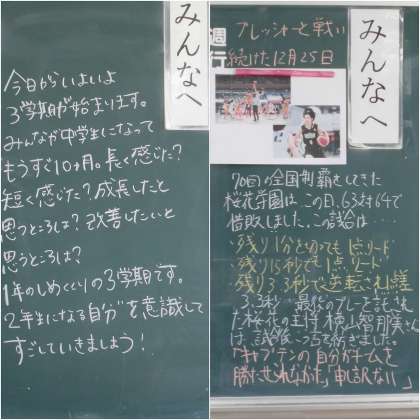 みんなへ
今日からいよいよ
3学期が始まります。
みんなが中学生になって
もうすぐ10ヶ月。長く感じた?
短く感じた?成長したと
思うところは?改善したいと
思うところは?
1年のしめくくりの3学期です。
2年生になる自分を意識して
すごしていきましょう!
週
行
みんなへ
プレッシャーと戦い
続けた12月25日
70回の全国制覇をしてきた
桜花学園はこの日、63対64で
惜敗しました。この試合は…
残り1分を切っても1点リード
残り15秒で1点リード
残り3.3秒で逆転される
3.3秒 最後のプレーをまかさ
れた桜花の主将 横山智那美さん
は、試合後こう
「キャプテンの自分がチームを
勝たせられなかった」「申し訳ない」